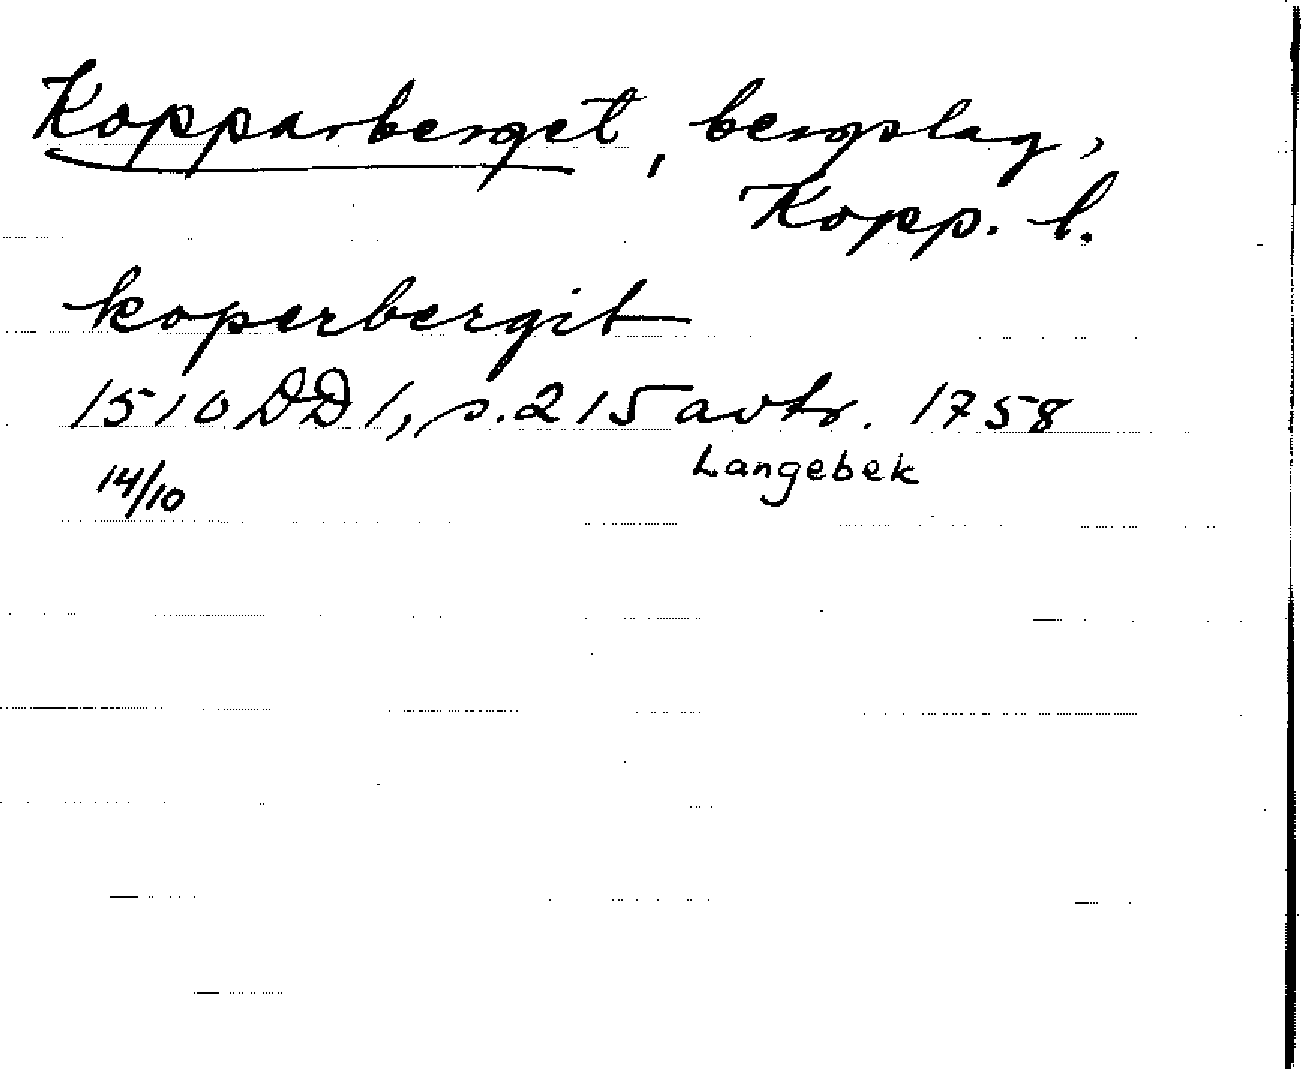 Kopparberget, bergslag,
Kopp. l.
koperbergit
1510 DD 1, s. 215 avtr. 1758
14/10 Langebek